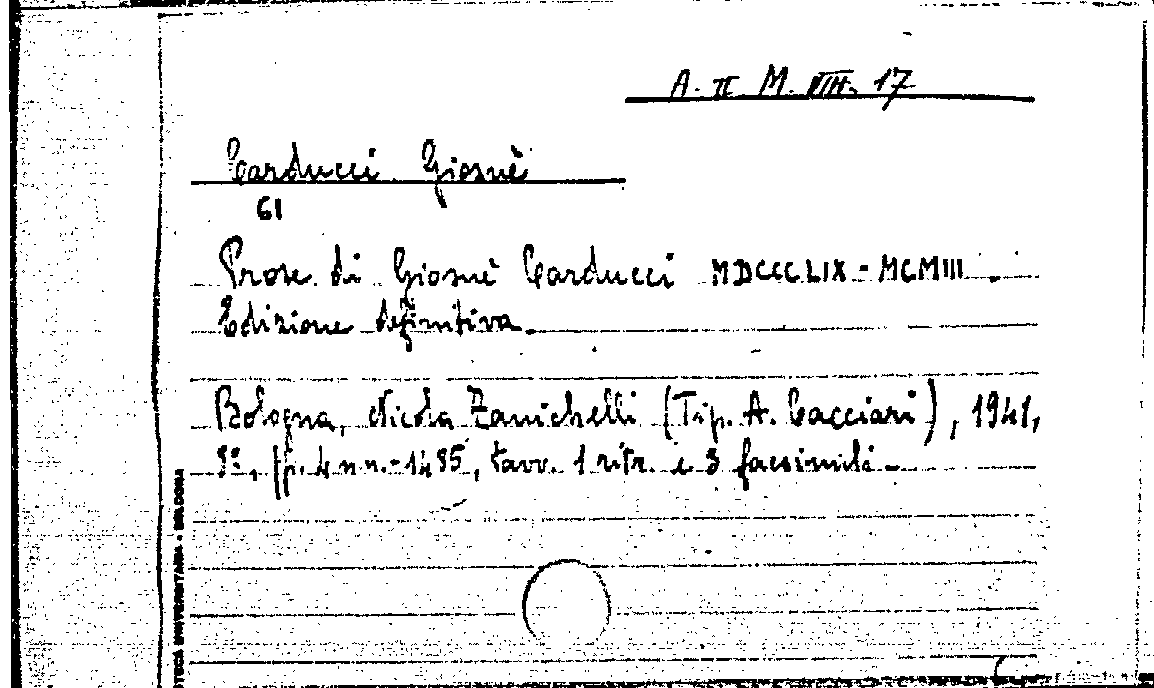 A. II M. VIII. 17
Carducci Giosuè
61
Prose di Giosuè Carducci MDCCCLIX - MCMIII.
Edizione definitiva.
Bologna, Nicola Zanichelli (Tip. A. Cacciari), 1941,
8º, pp. 4 n n. - 1485, tavv. 1 ritr. e 3 facsimili.
OTECA UNIVERSITARIA - BOLOGNA